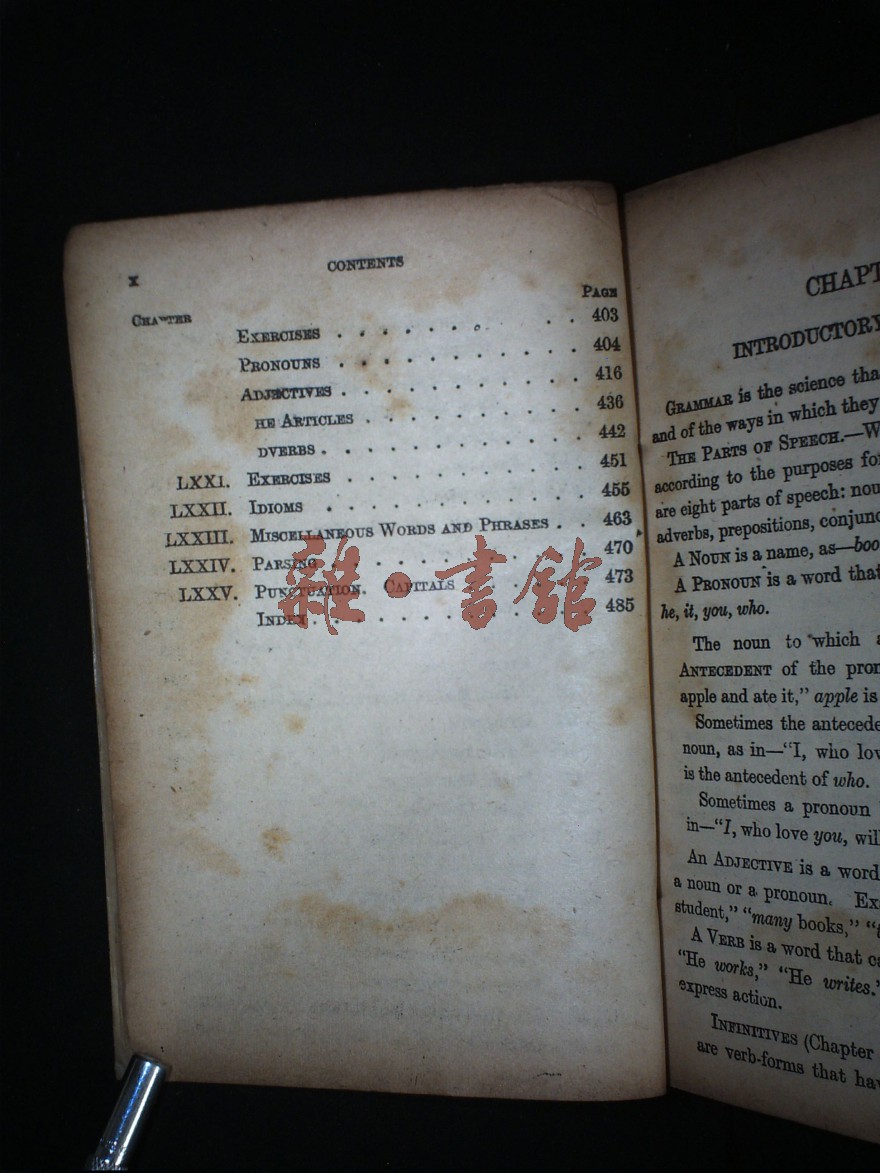 x
CONTENTS
CHAPTER
PAGE
EXERCISES . . . . . . . . . . 403
PRONOUNS . . . . . . . . . . 404
ADJECTIVES . . . . . . . . . . 416
HE ARTICLES . . . . . . . . . 436
DVERBS . . . . . . . . . . . 442
LXXI. EXERCISES . . . . . . . . . . 451
LXXII. IDIOMS . . . . . . . . . . 455
LXXIII. MISCELLANEOUS WORDS AND PHRASES . . 463
LXXIV. PARSING . . . . . . . . . . 470
LXXV. PUNCTUATION. CAPITALS . . . . . 473
INDEX . . . . . . . . . . . 485
雜·書館
CHAPT
INTRODUCTORY
GRAMMAR is the science tha
and of the ways in which they
THE PARTS OF SPEECH.—W
according to the purposes fo
are eight parts of speech: nou
adverbs, prepositions, conjunc
A NOUN is a name, as—boo
A PRONOUN is a word that
he, it, you, who.
The noun to which a
ANTECEDENT of the pron
apple and ate it,” apple is
Sometimes the antecede
noun, as in—“I, who lov
is the antecedent of who.
Sometimes a pronoun
in—“I, who love you, wil
An ADJECTIVE is a word
a noun or a pronoun. Ex
student,” “many books,” “t
A VERB is a word that ca
“He works,” “He writes.”
express action.
INFINITIVES (Chapter
are verb-forms that hav